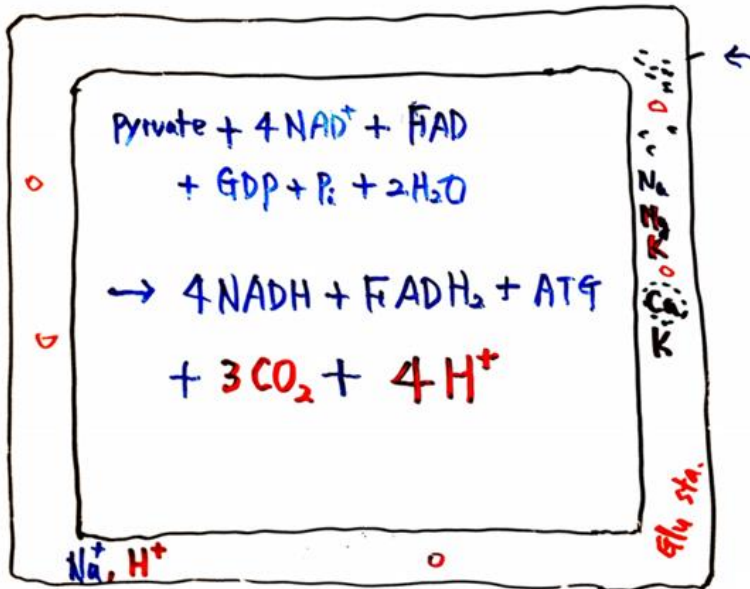 pyruvate + 4 NAD⁺ + FAD
+ GDP + Pi + 2H₂O
→ 4 NADH + FADH₂ + ATG
+ 3CO₂ + 4H⁺
Na
K
Ca
K
Glu sta.
Na⁺, H⁺